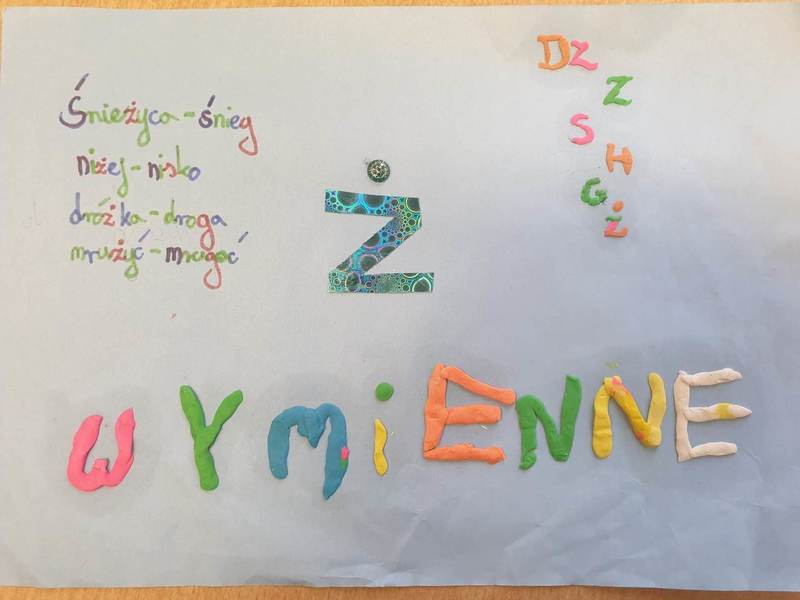 Śnieżyca - śnieg
niżej - nisko
dróżka - droga
mrużyć - mrugać
Ż
DZ
Z
S
H
G
Ż
WYMiENNE